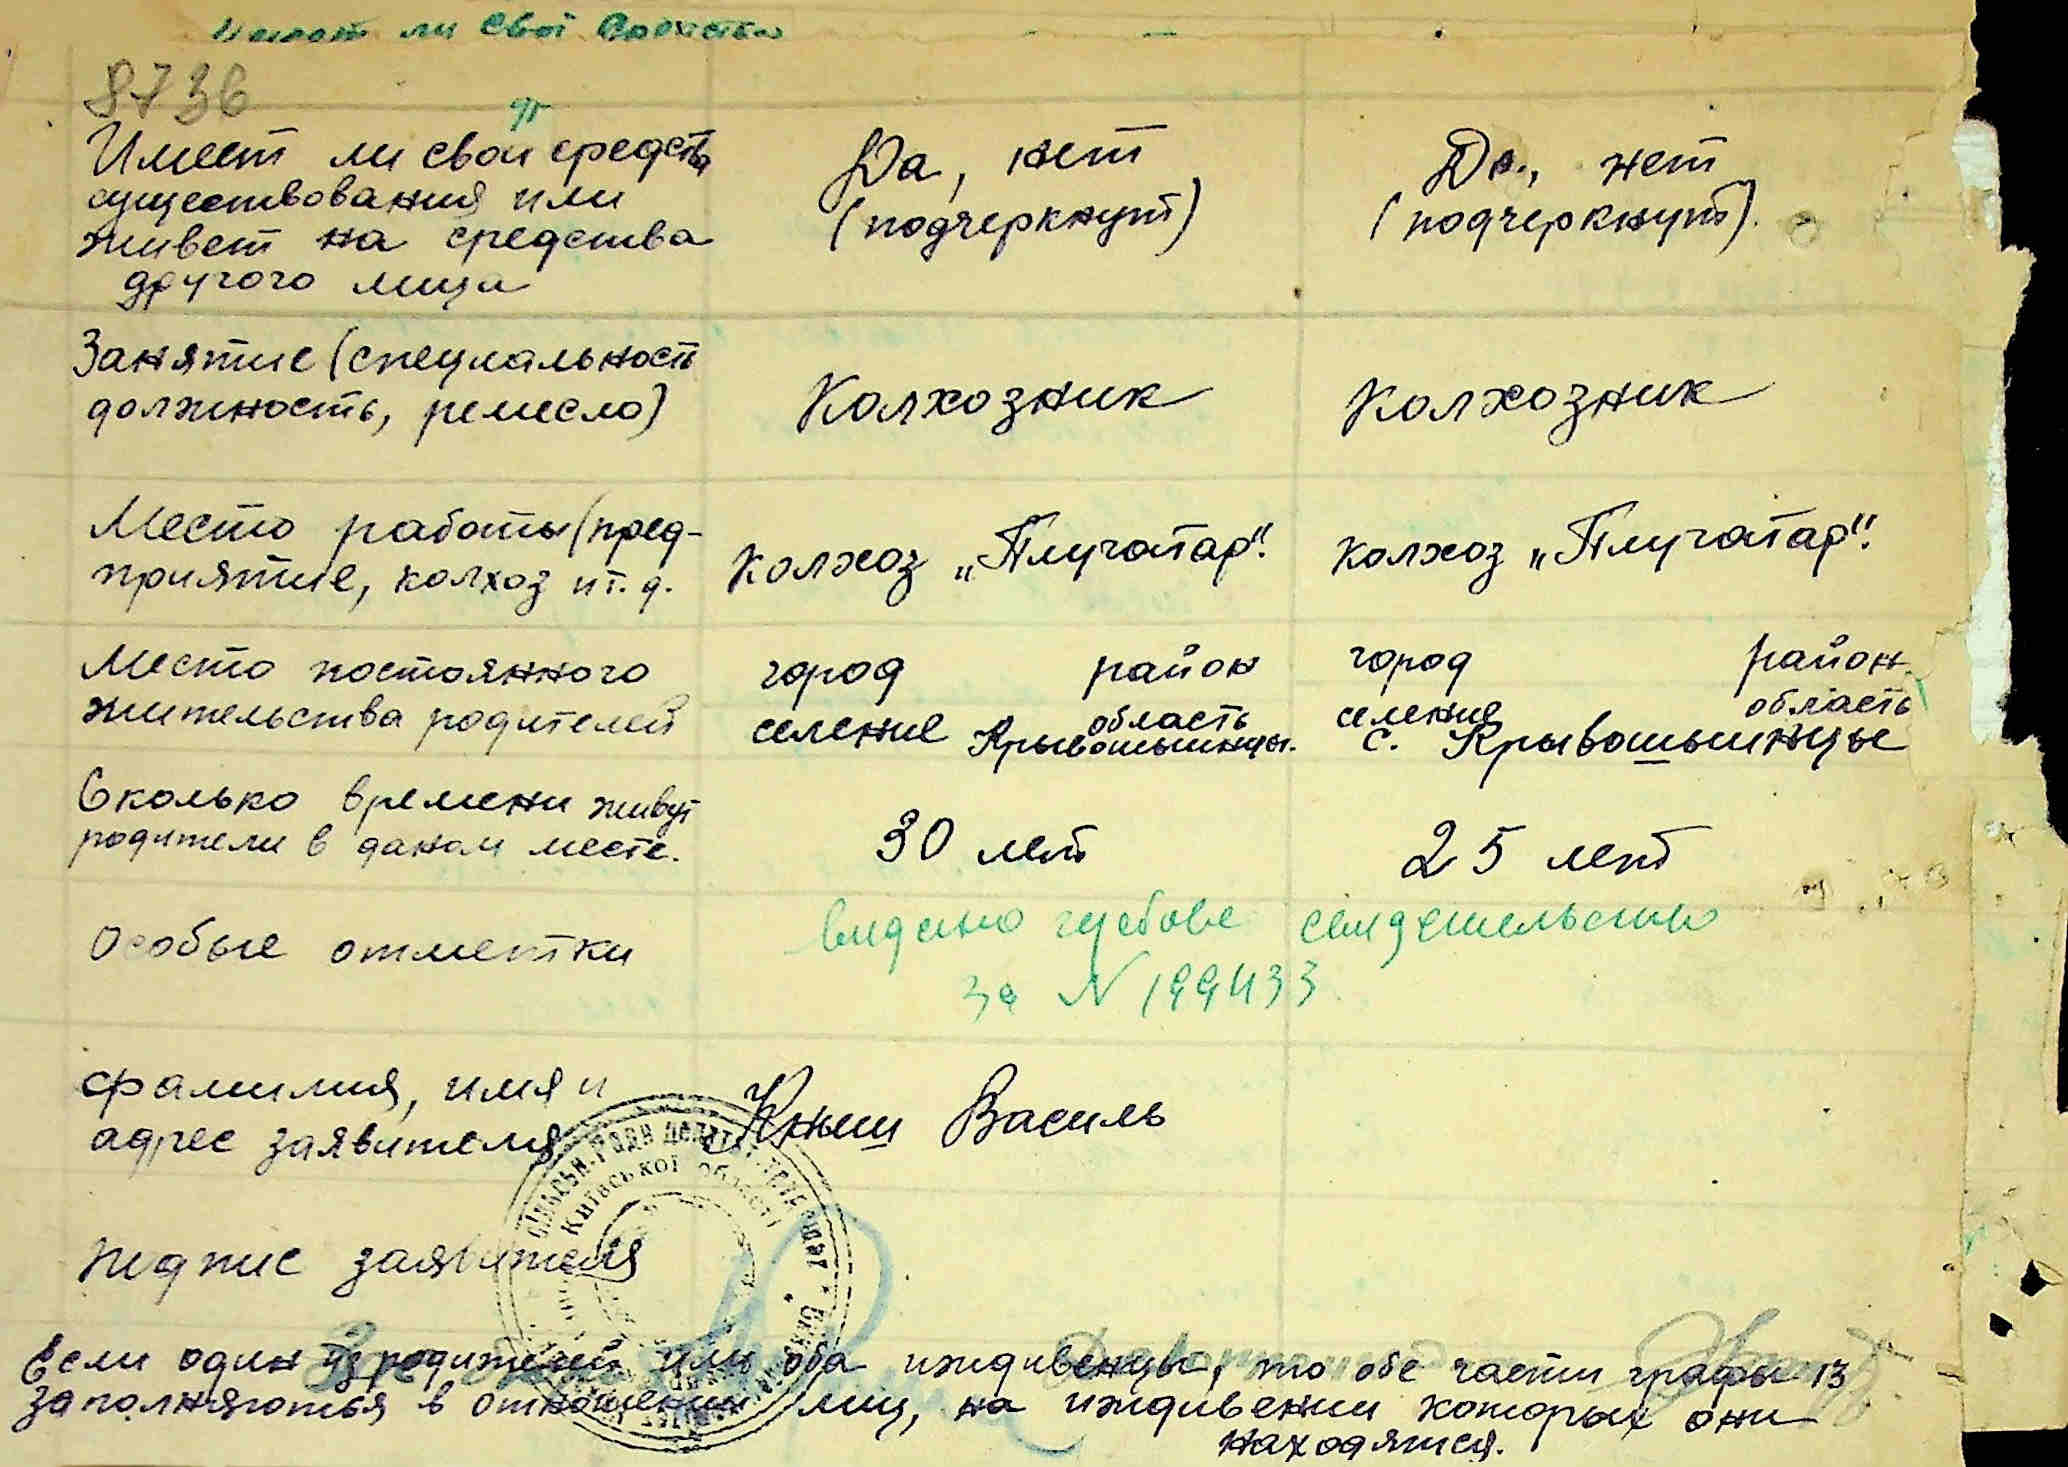 Имеет ли свої
8736
Имеет ли свои средства Да, нет Да, нет
существования или (подчеркнут) (подчеркнут).
живет на средства
другого лица
Занятие (специальность Колхозник Колхозник
должность, ремесло)
Место работы (пред- колхоз „Плугатар". колхоз „Плугатар".
приятие, колхоз и т. д.
Место постоянного город район город район
жительства родителей селение область селение область
Крывошыинцы. с. Крывошыинцы
Сколько времени живут 30 лет 25 лет
родители в даном месте.
Особые отметки видано свидетельство
за N 199433
Фамилия, имя и Кныш Василь
адрес заявителя
Київської області
подпис заявителя
Если один из родителей или оба иждивенцы, то обе части графы 13
заполняються в отношении лиц, на иждивении которых они
находятся.